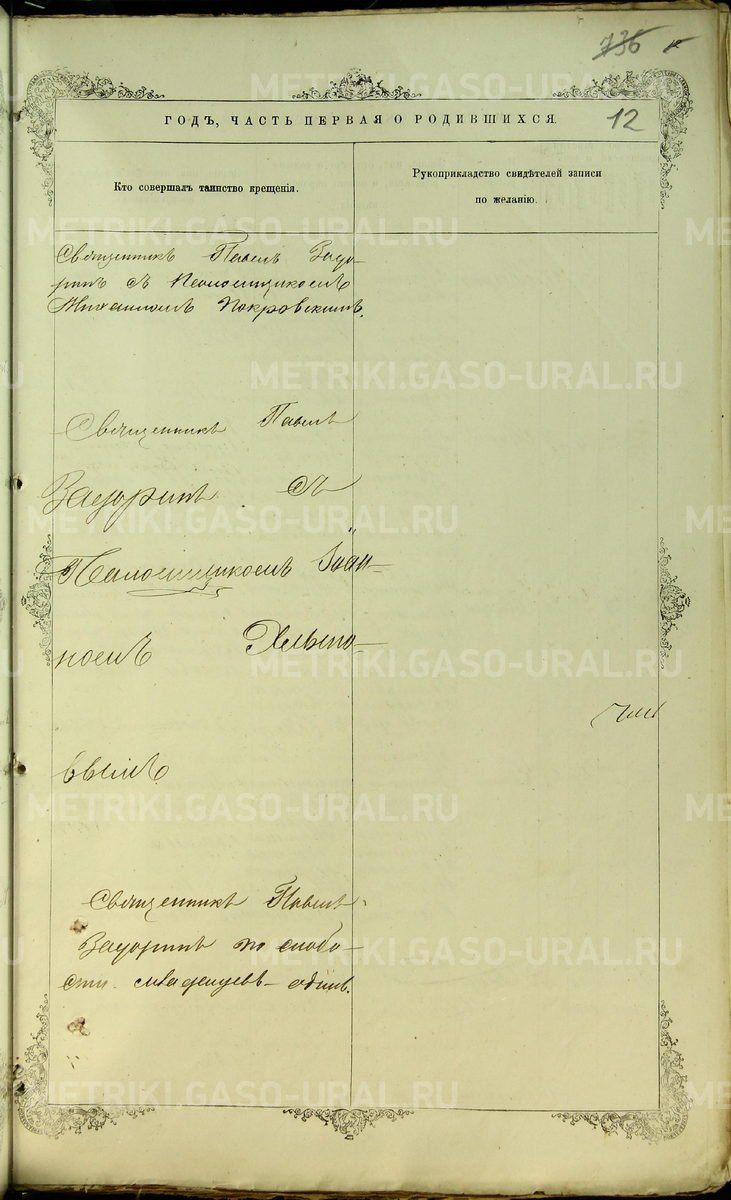 736
12
ГОДЪ, ЧАСТЬ ПЕРВАЯ О РОДИВШИХСЯ.
Кто совершалъ таинство крещенія.
Рукоприкладство свидѣтелей записи
по желанію.
Священникъ Павелъ Задо-
ринъ съ Псаломщикомъ
Михаиломъ Покровскимъ.
Священникъ Павелъ
Задоринъ съ
Псаломщикомъ Іоан-
номъ
вымъ.
Священникъ Павелъ
Задоринъ по слабо-
сти младенцевъ – одинъ.
METRIKI.GASO-URAL.RU